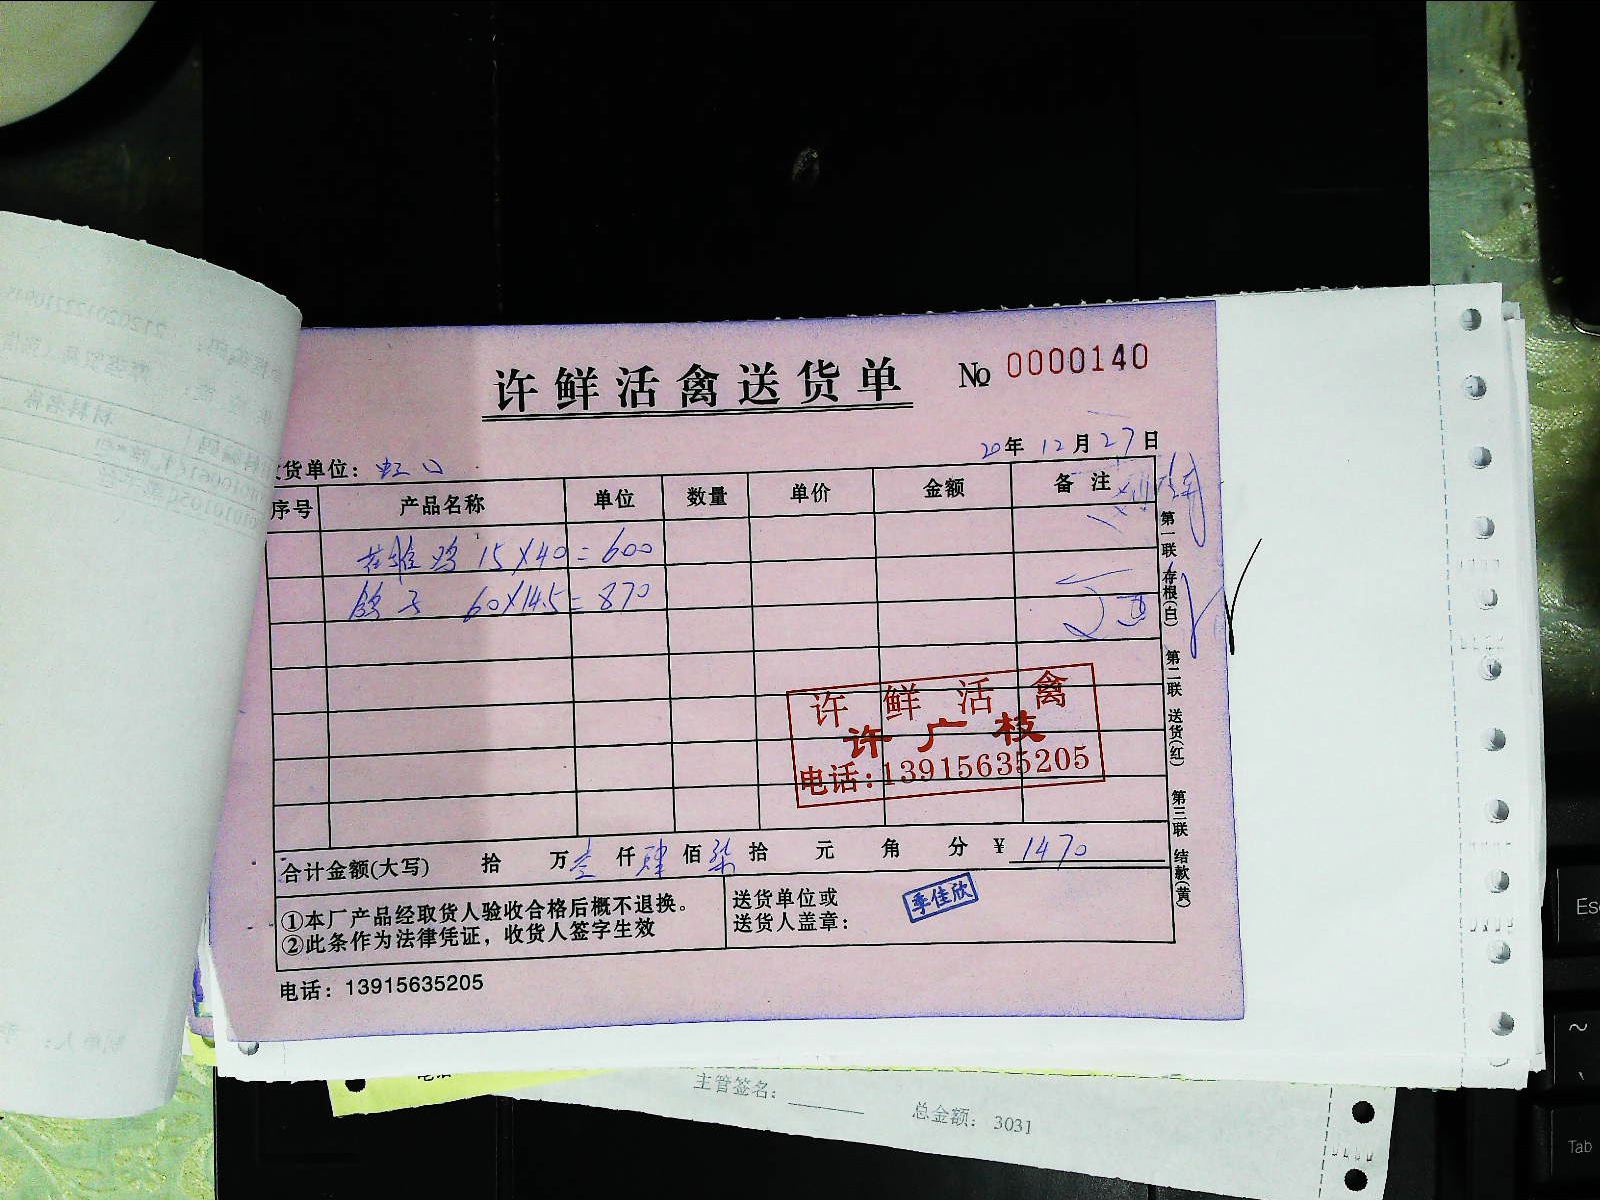 许鲜活禽送货单 № 0000140
20年 12月 27日
货单位：虹口
序号 产品名称 单位 数量 单价 金额 备注
鸡 15×40=600
鸽子 60×14.5=870
第一联 存根(白) 第二联 送货(红) 第三联 结款(黄)
许鲜活禽
许广枝
电话:13915635205
合计金额(大写) 拾 万壹仟肆佰柒拾 元 角 分 ¥ 1470
①本厂产品经取货人验收合格后概不退换。
②此条作为法律凭证，收货人签字生效
送货单位或
送货人盖章：
季佳欣
电话：13915635205
主管签名：
总金额： 3031
Esc
~
Tab